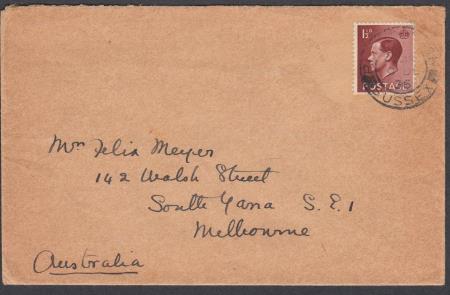 1½D
POSTAGE
36
SUSSEX
Mrs Felix Meyer
142 Walsh Street
South Yarra S.E.1
Melbourne
Australia